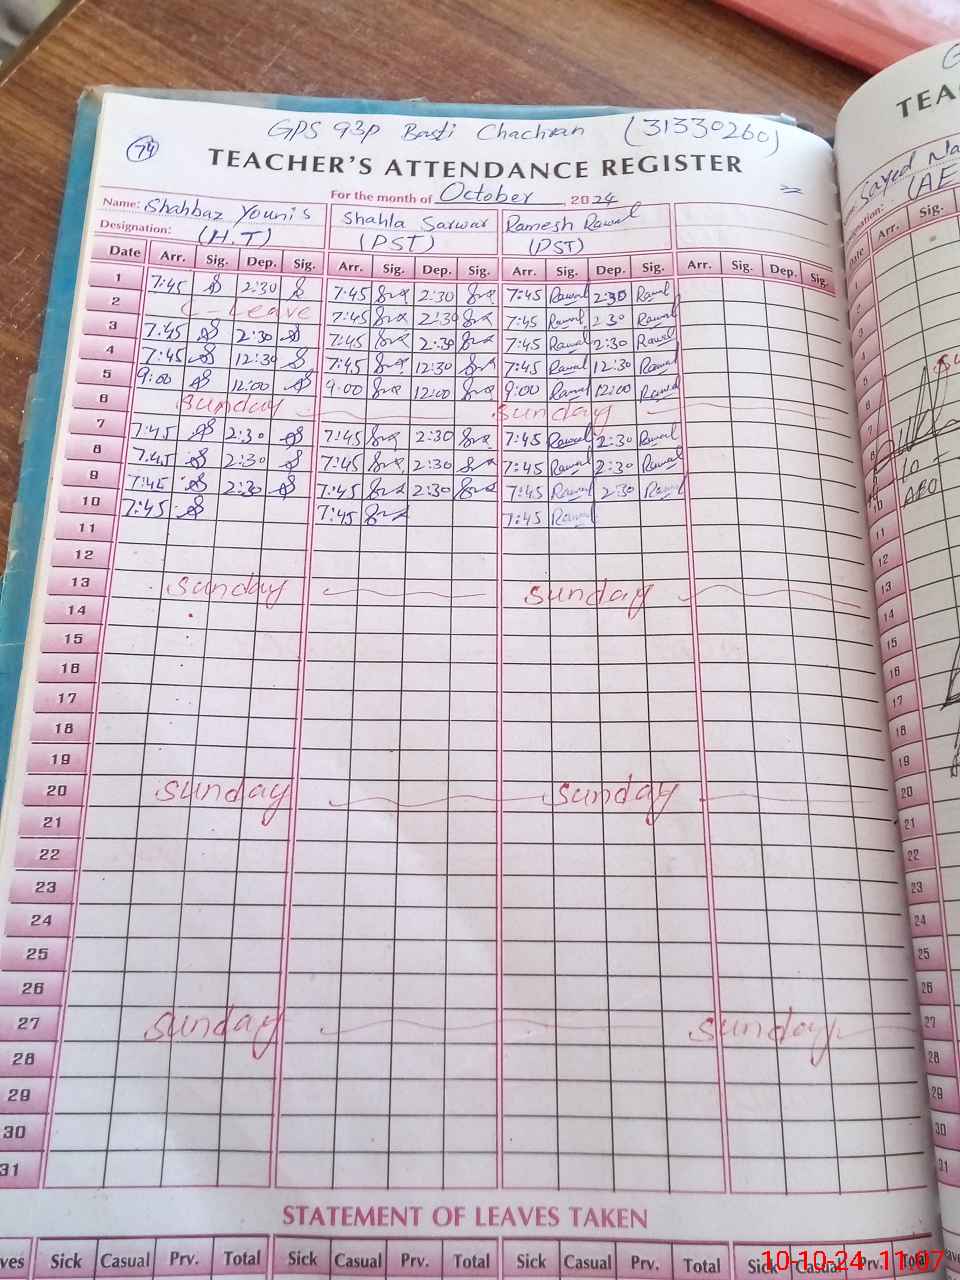 GPS 93P Basti Chachran (31330260)
74
TEACHER'S ATTENDANCE REGISTER
For the month of October 2024
Name: Shahbaz Younis Shahla Sarwar Ramesh Rawal
Designation: (H.T) (PST) (PST)
Date Arr. Sig. Dep. Sig. Arr. Sig. Dep. Sig. Arr. Sig. Dep. Sig. Arr. Sig. Dep. Sig.
1 7:45 2:30 7:45 2:30 7:45 Rawal 2:30 Rawal
2 C-Leave 7:45 2:30 7:45 Rawal 2:30 Rawal
3 7:45 2:30 7:45 2:30 7:45 Rawal 2:30 Rawal
4 7:45 12:30 7:45 12:30 7:45 Rawal 12:30 Rawal
5 9:00 12:00 9:00 12:00 9:00 Rawal 12:00 Rawal
6 Sunday Sunday
7 7:45 2:30 7:45 2:30 7:45 Rawal 2:30 Rawal
8 7:45 2:30 7:45 2:30 7:45 Rawal 2:30 Rawal
9 7:45 2:30 7:45 2:30 7:45 Rawal 2:30 Rawal
10 7:45 7:45 7:45 Rawal
11
12
13 Sunday Sunday
14
15
16
17
18
19
20 Sunday Sunday
21
22
23
24
25
26
27 Sunday Sunday
28
29
30
31
STATEMENT OF LEAVES TAKEN
ves Sick Casual Prv. Total Sick Casual Prv. Total Sick Casual Prv. Total Sick Casual Prv. Total
10-10-24 11:07
TEAC
Sayed Na
(AE
Arr. Sig.
10
AEO
11
12
13
14
15
16
17
18
19
20
21
22
23
24
25
26
27
28
29
30
31